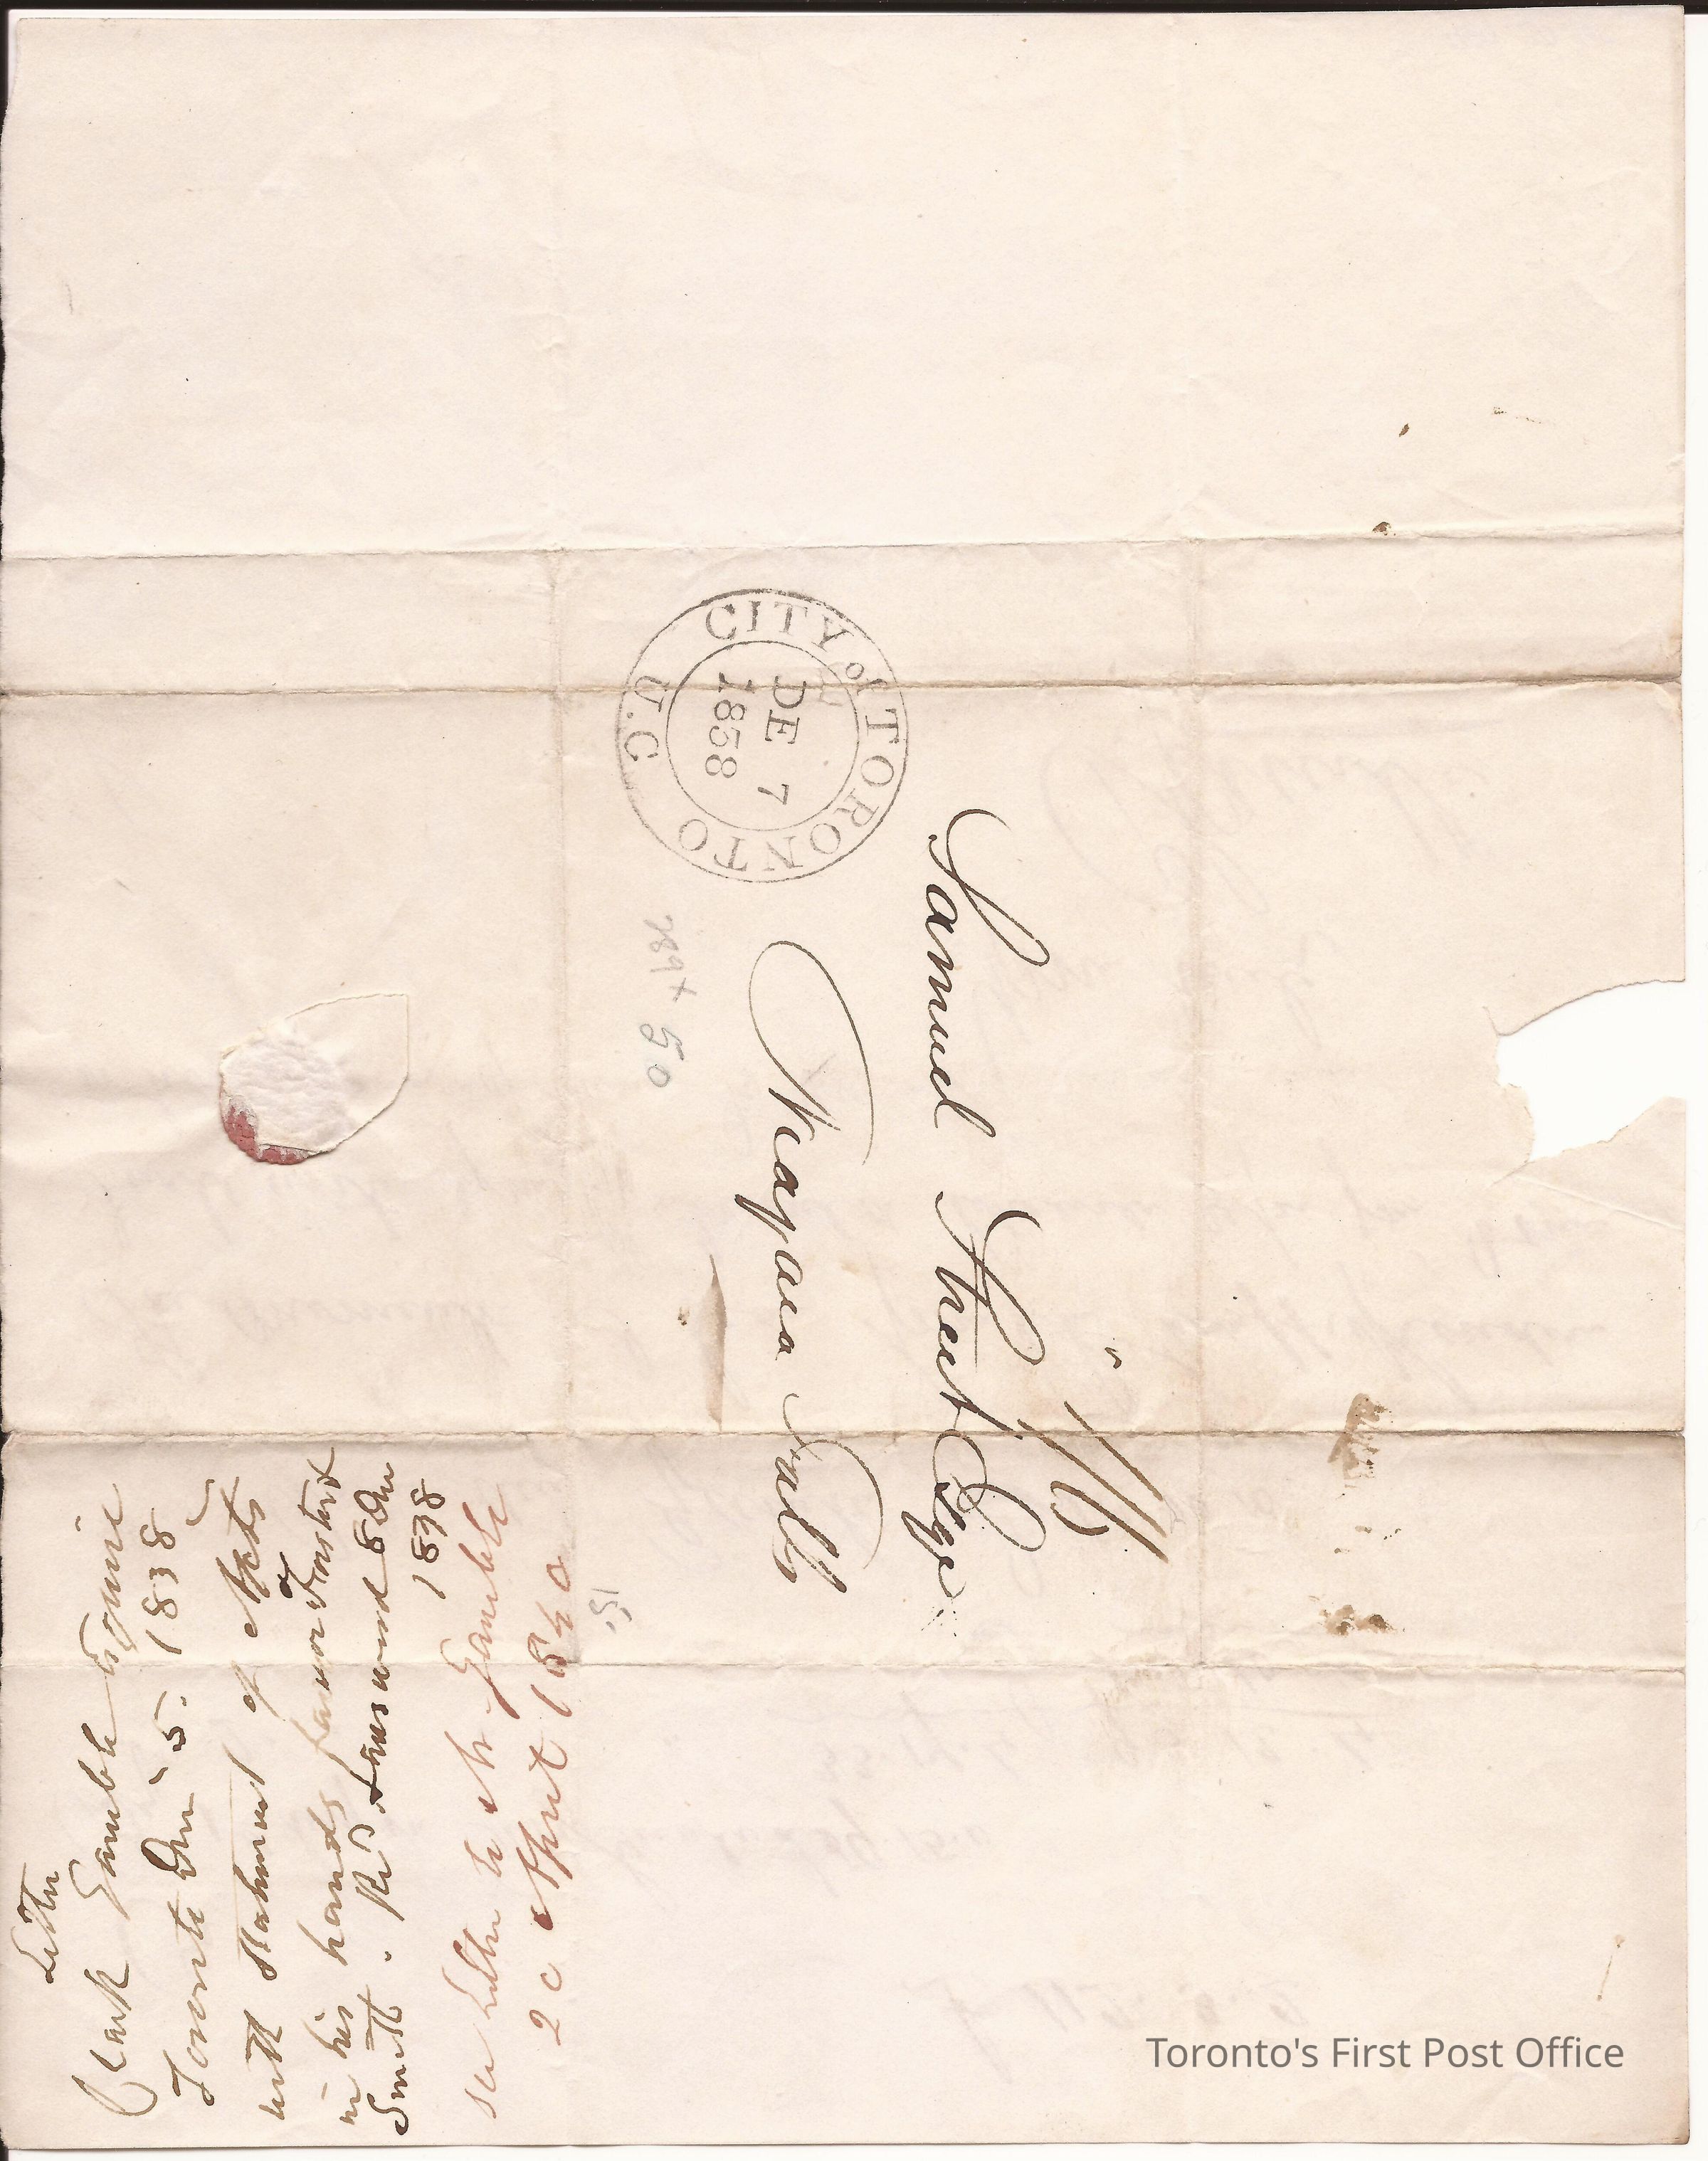 CITY of TORONTO
DE 7
1838
U.C.
Samuel Street Esqr
Niagara Falls
789 x 50
Letter
Clark Gamble Esquire
Toronto Decr 5. 1838
with Statement of Notes
in his hands favor
Smith. Rd & answered 8 Decr
1838
see Letter to Mr Gamble
2 c April 1840
Toronto's First Post Office